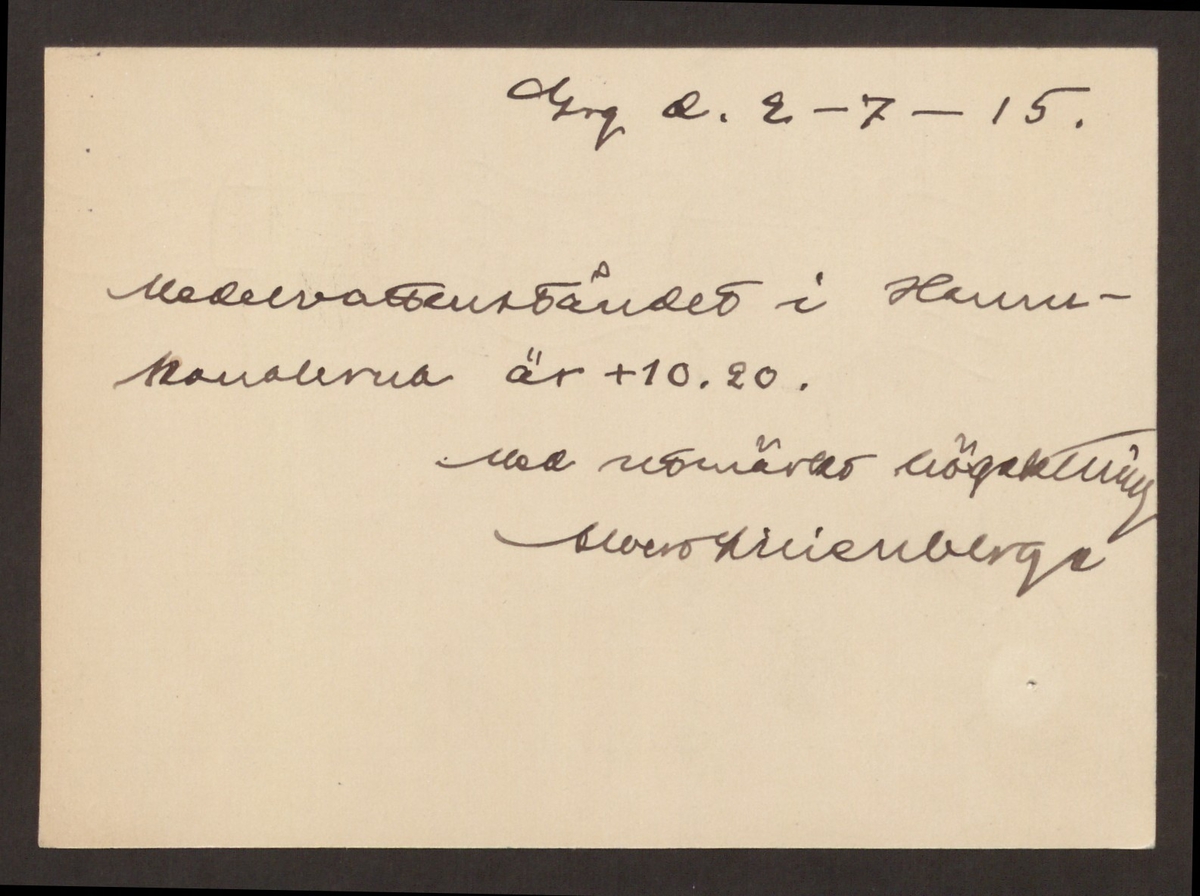 Gbg d. 2-7-15.
Medelvattenståndet i Hamn-
kanalerna är +10.20.
Med utmärkt högaktning
Albert Lilienberg